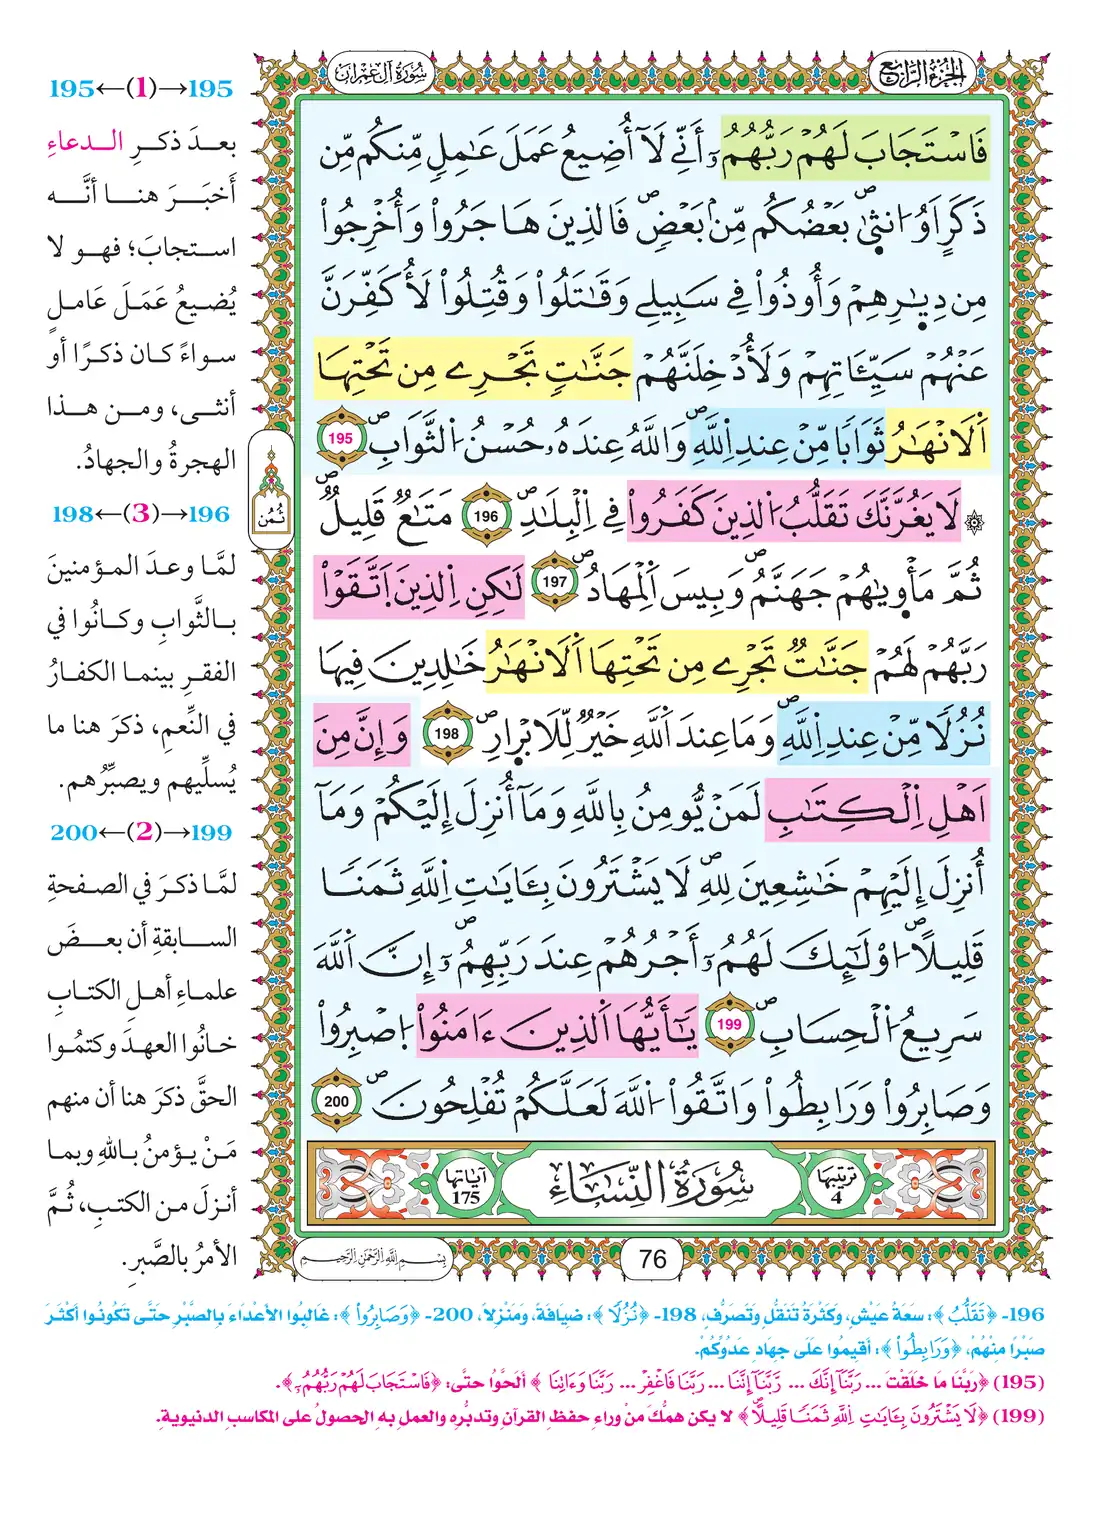 الجزء الرابع
سورة آل عمران
فَاسْتَجَابَ لَهُمْ رَبُّهُمُۥٓ أَنِّے لَآ أُضِيعُ عَمَلَ عَٰمِلٖ مِّنكُم مِّن
ذَكَرٍ اَوُ ا۟نث۪يٰۖ بَعْضُكُم مِّنۢ بَعْضٖۖ فَالذِينَ هَاجَرُواْ وَأُخْرِجُواْ
مِن دِيٰ۪رِهِمْ وَأُوذُواْ فِے سَبِيلِے وَقَٰتَلُواْ وَقُتِلُواْ لَأُكَفِّرَنَّ
عَنْهُمْ سَيِّـَٔاتِهِمْ وَلَأُدْخِلَنَّهُمْ جَنَّٰتٖ تَجْرِے مِن تَحْتِهَا
اَ۬لَانْهَٰرُ ثَوَاباٗ مِّنْ عِندِ اِ۬للَّهِۖ وَاللَّهُ عِندَهُۥ حُسْنُ اُ۬لثَّوَابِۖ 195
۞ لَا يَغُرَّنَّكَ تَقَلُّبُ اُ۬لذِينَ كَفَرُواْ فِے اِ۬لْبِلَٰدِۖ 196 مَتَٰعٞ قَلِيلٞۖ
ثُمَّ مَأْو۪يٰهُمْ جَهَنَّمُۖ وَبِيسَ اَ۬لْمِهَادُۖ 197 لَٰكِنِ اِ۬لذِينَ اَ۪تَّقَوْاْ
رَبَّهُمْ لَهُمْ جَنَّٰتٞ تَجْرِے مِن تَحْتِهَا اَ۬لَانْهَٰرُ خَٰلِدِينَ فِيهَا
نُزُلاٗ مِّنْ عِندِ اِ۬للَّهِۖ وَمَا عِندَ اَ۬للَّهِ خَيْرٞ لِّلَابْر۪ارِۖ 198 وَإِنَّ مِنَ
اَهْلِ اِ۬لْكِتَٰبِ لَمَنْ يُّومِنُ بِاللَّهِ وَمَآ أُنزِلَ إِلَيْكُمْ وَمَآ
أُنزِلَ إِلَيْهِمْ خَٰشِعِينَ لِلهِۖ لَا يَشْتَرُونَ بِـَٔايَٰتِ اِ۬للَّهِ ثَمَناٗ
قَلِيلاًۖ ا۟وْلَٰٓئِكَ لَهُمُۥٓ أَجْرُهُمْ عِندَ رَبِّهِمُۥٓۖ إِنَّ اَ۬للَّهَ
سَرِيعُ اُ۬لْحِسَابِۖ 199 يَٰٓأَيُّهَا اَ۬لذِينَ ءَامَنُواْ اُ۪صْبِرُواْ
وَصَابِرُواْ وَرَابِطُواْ وَاتَّقُواْ اُ۬للَّهَ لَعَلَّكُمْ تُفْلِحُونَۖ 200
ترتيبها 4
سُورَةُ النِّسَاءِ
آياتها 175
76
بسم الله الرحمن الرحيم
ثُمُن
195←(1)→195
بعدَ ذكرِ الدعاءِ
أَخبَرَ هنا أنَّه
استجابَ؛ فهو لا
يُضيعُ عَمَلَ عَاملٍ
سواءً كان ذكرًا أو
أنثى، ومن هذا
الهجرةُ والجهادُ.
198←(3)→196
لمَّا وعدَ المؤمنينَ
بالثَّوابِ وكانُوا في
الفقرِ بينما الكفارُ
في النِّعمِ، ذكرَ هنا ما
يُسلِّيهم ويصبِّرُهم.
200←(2)→199
لمَّا ذكرَ في الصفحةِ
السابقةِ أن بعضَ
علماءِ أهلِ الكتابِ
خانُوا العهدَ وكتمُوا
الحقَّ ذكرَ هنا أن منهم
مَنْ يؤمنُ باللهِ وبما
أنزلَ من الكتبِ، ثُمَّ
الأمرُ بالصَّبرِ.
196- ﴿تَقَلُّبُ﴾: سَعَةُ عَيْشِ، وَكَثْرَةُ تَنَقُّلِ وَتَصَرُّفِ، 198- ﴿نُزُلًا﴾: ضِيَافَةً، وَمَنْزِلًا، 200- ﴿وَصَابِرُواْ﴾: غَالِبُوا الأَعْدَاءَ بِالصَّبْرِ حَتَّى تَكُونُوا أَكْثَرَ
صَبْرًا مِنْهُمْ، ﴿وَرَابِطُواْ﴾: أَقِيمُوا عَلَى جِهَادِ عَدُوِّكُمْ.
(195) ﴿رَبَّنَا مَا خَلَقْتَ ... رَبَّنَآ إِنَّكَ ... رَبَّنَآ إِنَّنَا ... رَبَّنَا فَاغْفِرْ ... رَبَّنَا وَءَاتِنَا﴾ ألحُّوا حتَّى: ﴿فَاسْتَجَابَ لَهُمْ رَبُّهُمُۥٓ﴾.
(199) ﴿لَا يَشْتَرُونَ بِـَٔايَٰتِ اِ۬للَّهِ ثَمَناٗ قَلِيلاًۖ﴾ لا يكن همُّكَ منْ وراءِ حفظِ القرآنِ وتدبُّرِه والعملِ به الحصولُ على المكاسبِ الدنيويةِ.